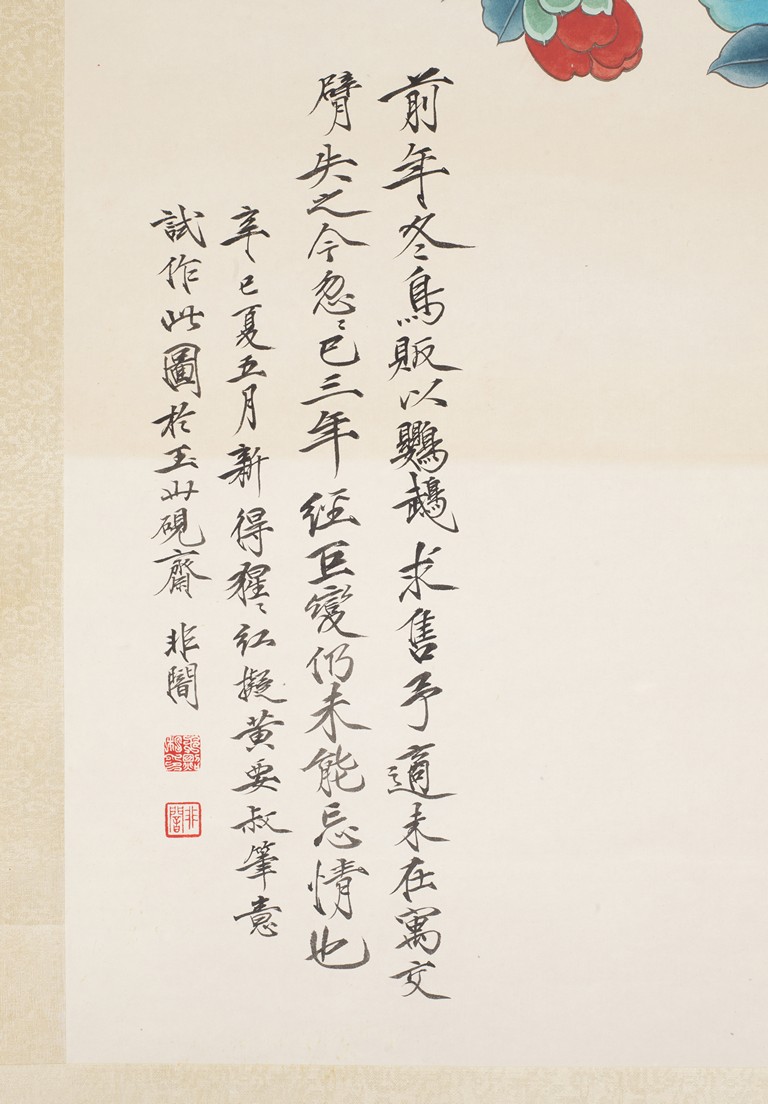 前年冬鳥販以鸚鵡求售予適未在寓交
臂失之今忽〻已三年經巨變仍未能忘情也
辛巳夏五月新得猩〻紅擬黃要叔筆意
試作此圖於玉山硯齋 非闇
非闇